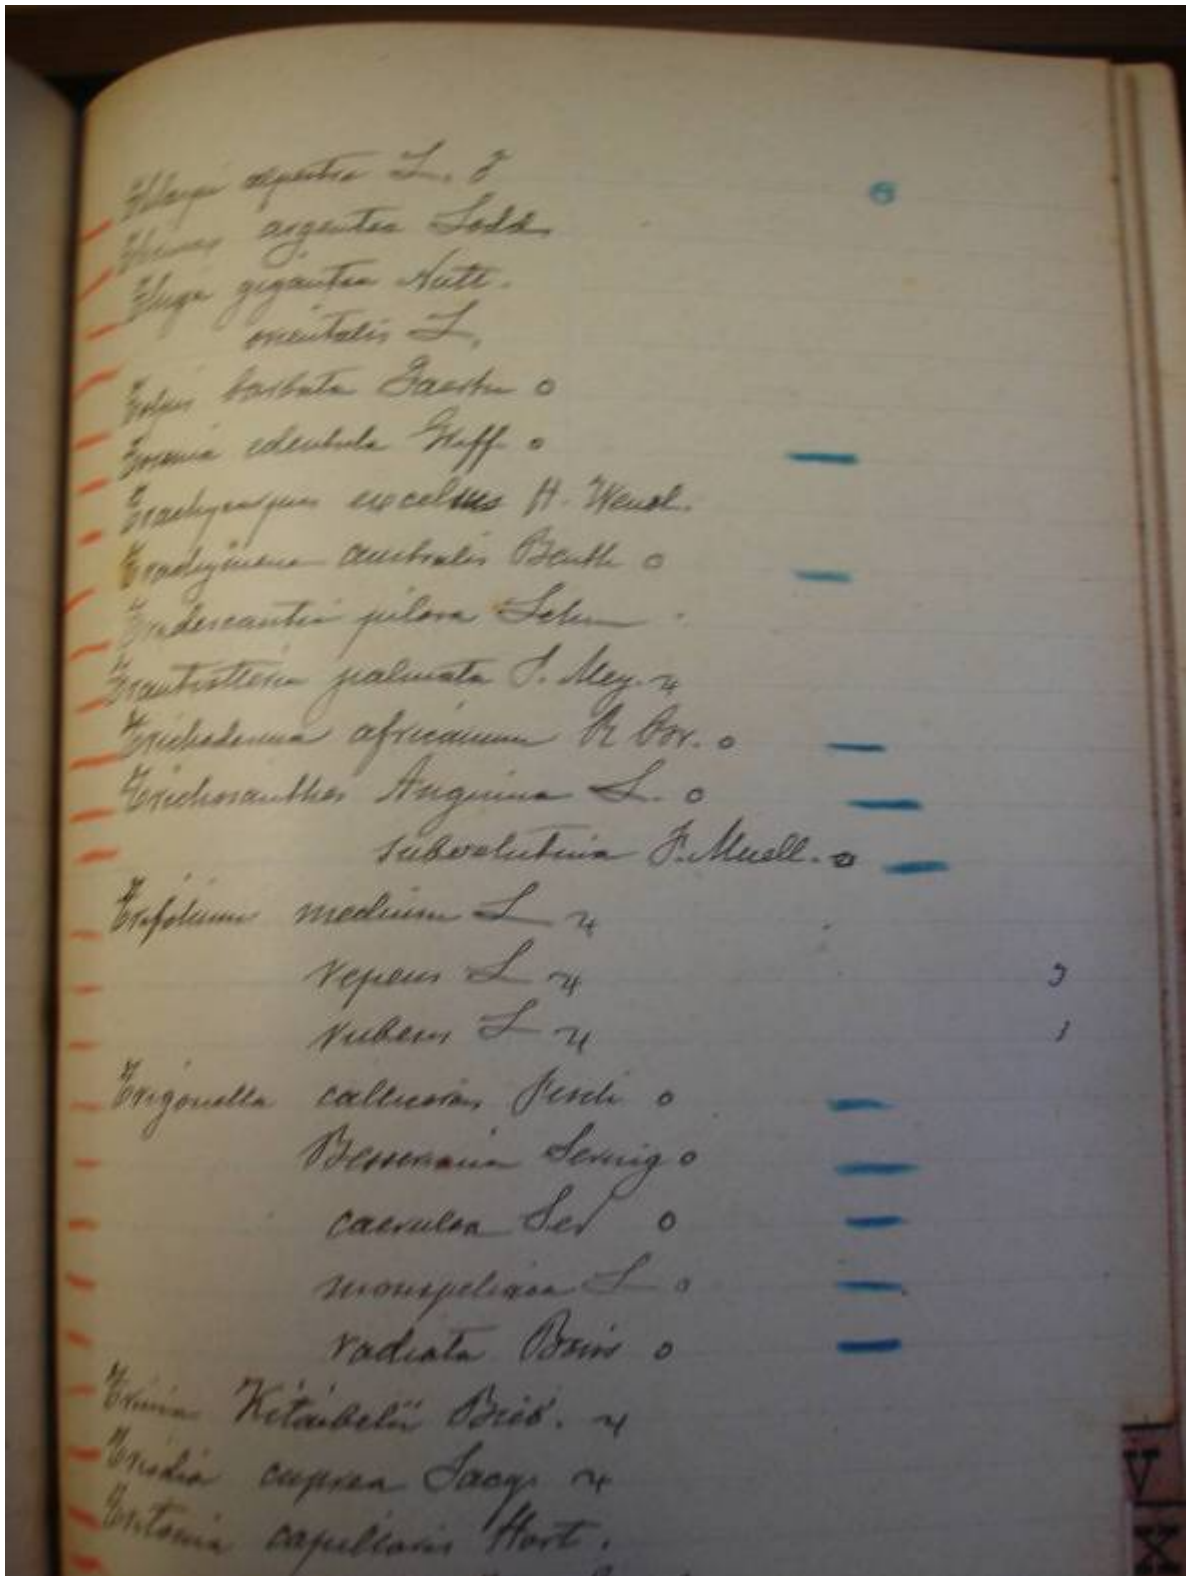 Thlaspi alpestre L. ♂
Thrinax argentea Lodd.
Thuja gigantea Nutt.
orientalis L.
Tolpis barbata Gaertn o
Torenia edentula Griff. o
Trachycarpus excelsus H. Wendl.
Trachymene australis Benth o
Tradescantia pilosa Lehm
Trautvetteria palmata F. Mey. ♃
Trichodesma africanum R Br. o
Trichosanthes Anguina L. o
subvelutina F. Muell. o
Trifolium medium L ♃
repens L ♃ 3
rubens L ♃ 1
Trigonella calliceras Fisch o
Besseriana Sering o
caerulea Ser o
monspeliaca L o
radiata Boiss o
Trinia Kitaibelii Bieb. ♃
cuprea Jacq. ♃
Tritonia capillaris Hort.
V
X